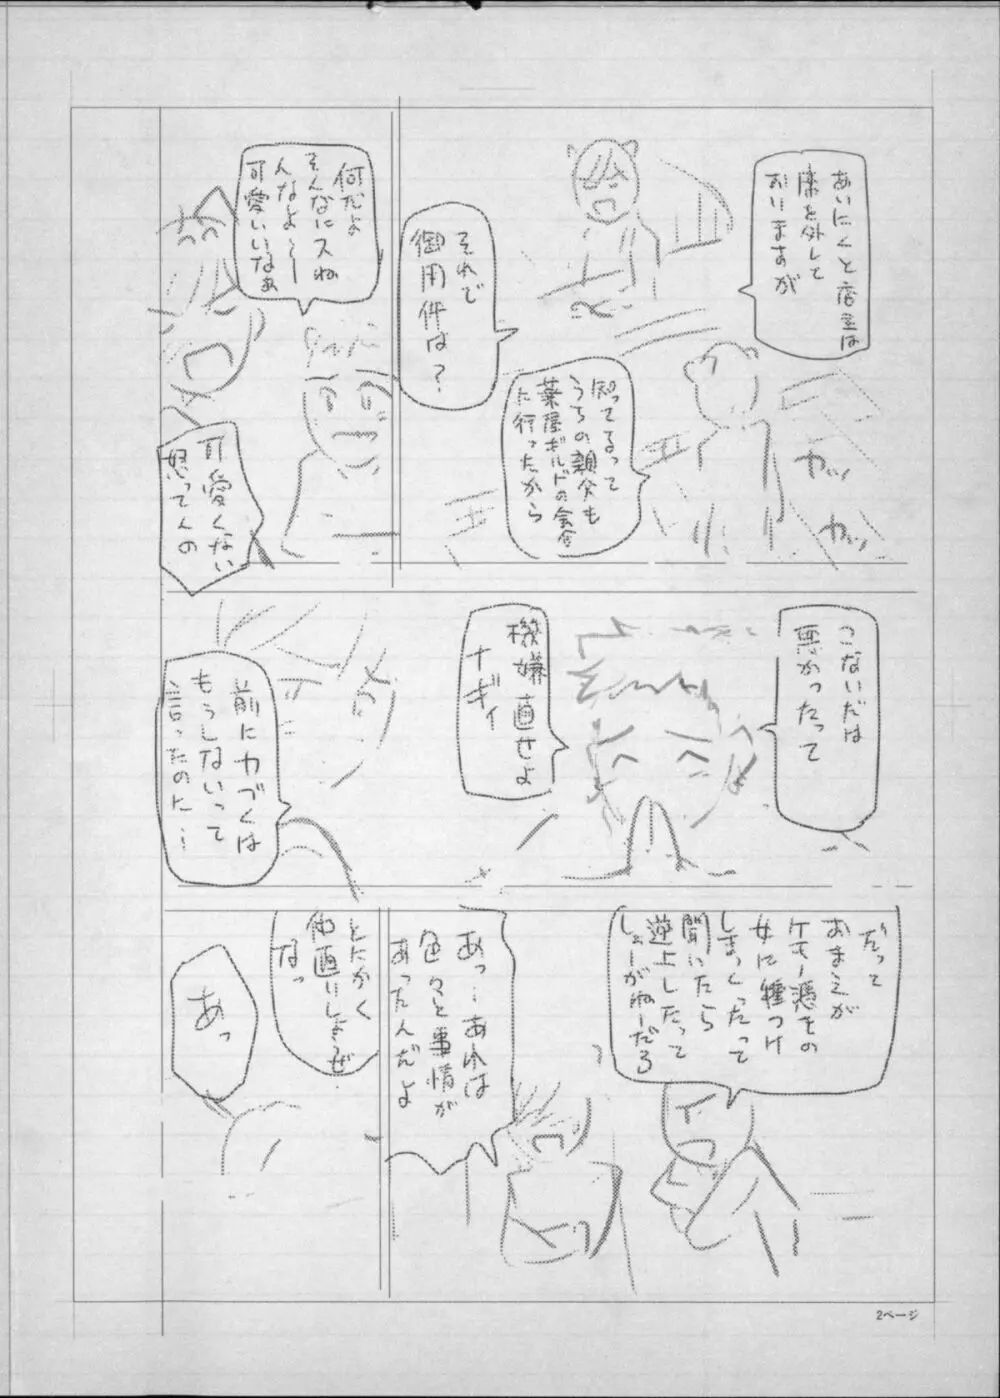 あいにくと店主は
席を外して
おりますが
それで
御用件は?
知ってるって
うちの親父も
薬屋ギルドの会合
に行ったから
カッ
カッ
何だよ
そんなにスね
んなよ～
可愛いいなぁ
可愛くない
怒ってんの
こないだは
悪かったって
機嫌直せよ
ナギィ
前に力づくは
もうしないって
言ったのに…
だって
おまえが
ケモノ憑きの
女に種つけ
しまくったって
聞いたら
逆上したって
しょーがねーだろ
あっ…あれは
色々と事情が
あったんだよ
とにかく
仲直りしようぜ
なっ
あっ
2ページ